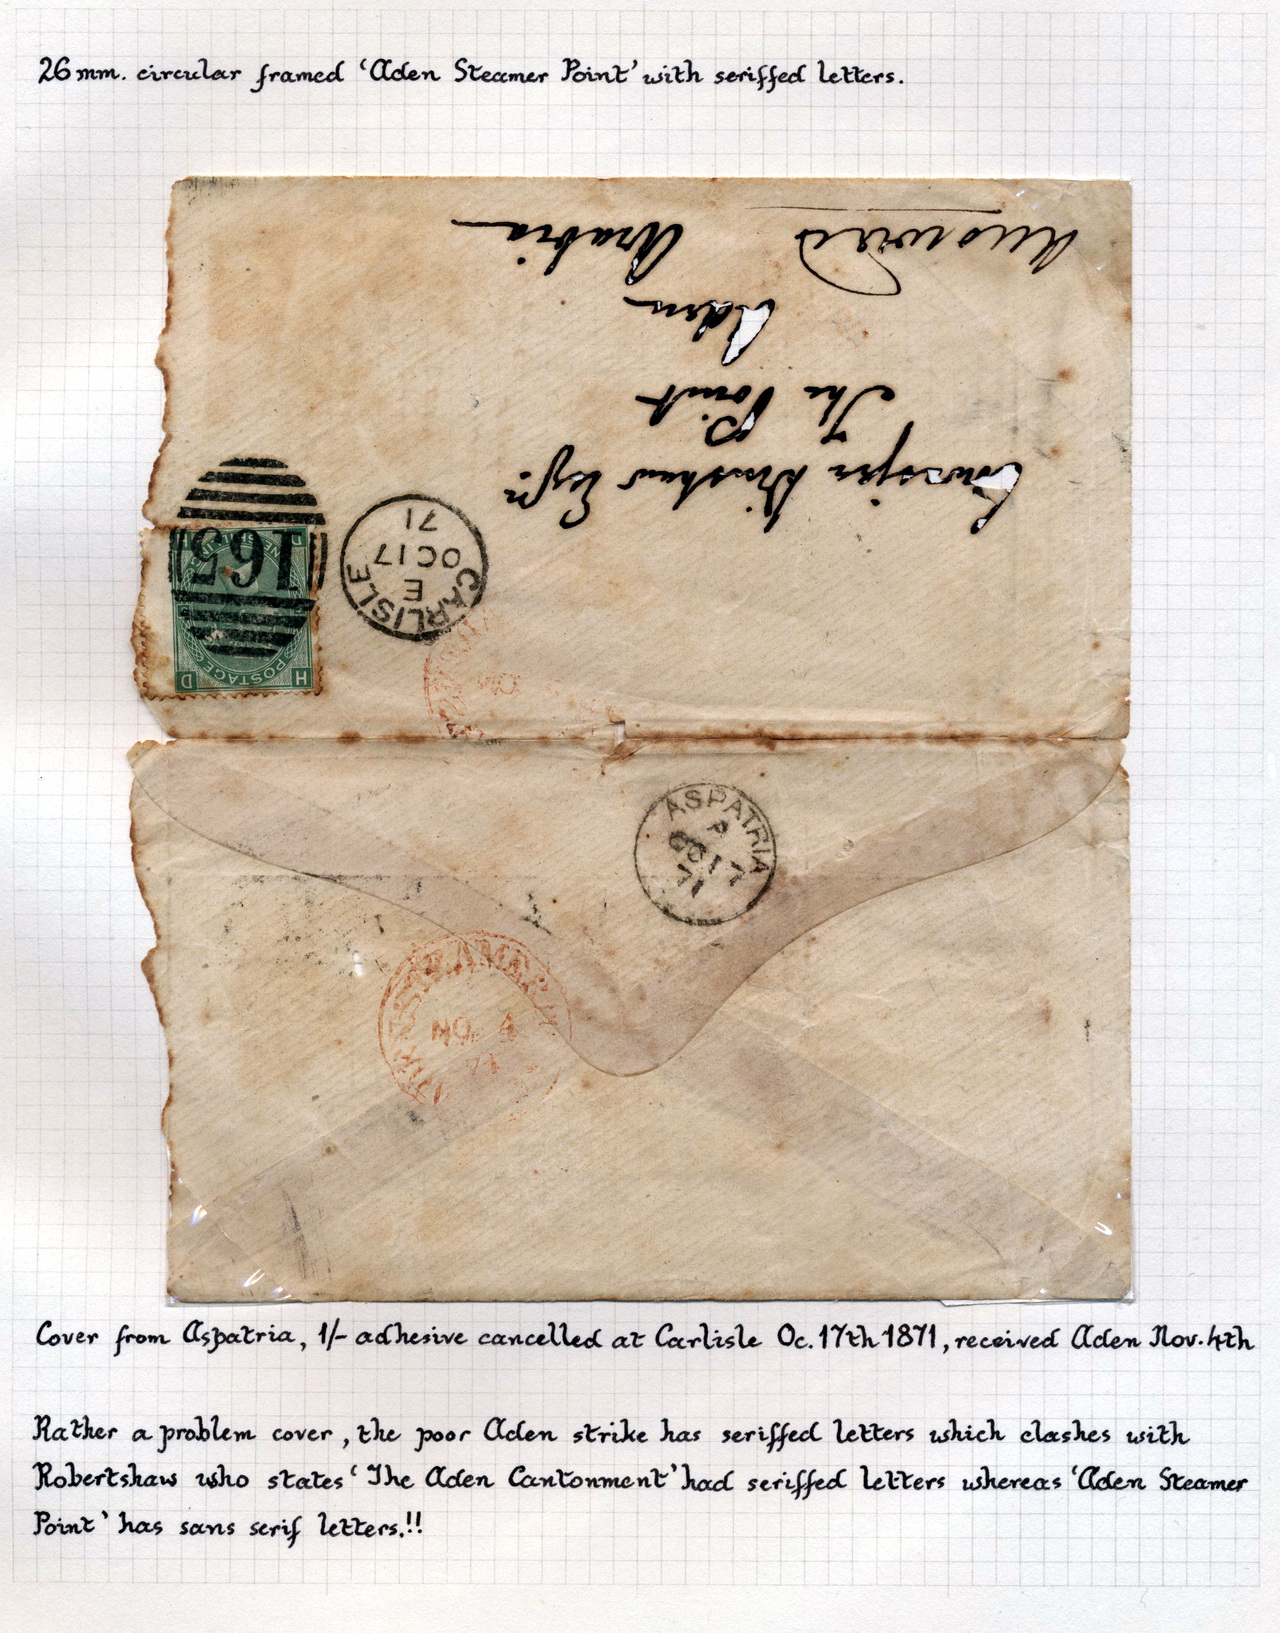 26mm. circular framed 'Aden Steamer Point' with seriffed letters.
Answered
Arabia
Aden
The Point
Cowasjee Dinshaw Esqr.
165
CARLISLE
E
OC 17
71
H D
POSTAGE
ASPATRIA
A
OC 17
71
STEAMER
NO 4
Cover from Aspatria, 1/- adhesive cancelled at Carlisle Oc. 17th 1871, received Aden Nov. 4th
Rather a problem cover, the poor Aden strike has seriffed letters which clashes with
Robertshaw who states 'The Aden Cantonment' had seriffed letters whereas 'Aden Steamer
Point' has sans serif letters.!!